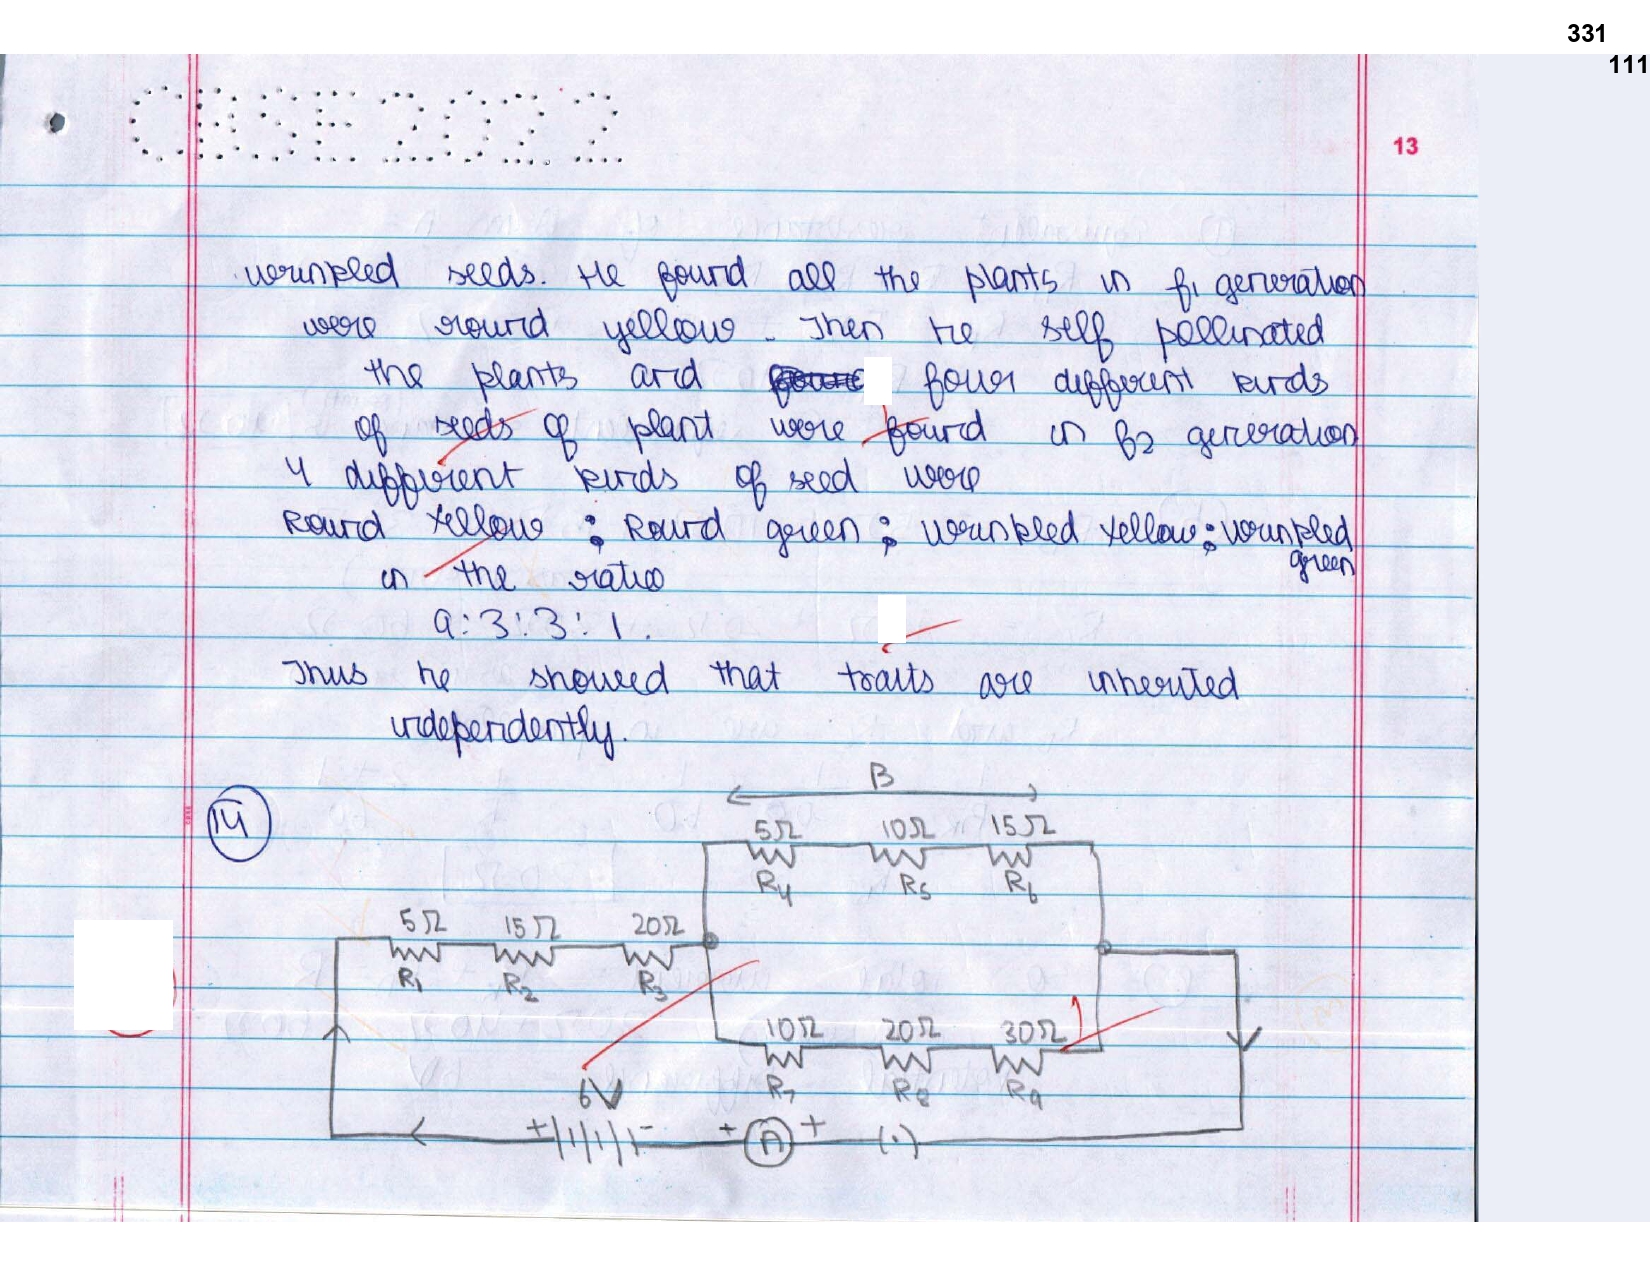 331
111
CBSE 2022
13
wrinkled seeds. He found all the plants in f1 generation
were round yellow. Then he self pollinated
the plants and four different kinds
of seeds of plant were found in f2 generation
4 different kinds of seed were
Round Yellow : Round green : wrinkled Yellow : wrinkled
green
in the ratio
9:3:3:1.
Thus he showed that traits are inherited
independently.
14
B
5Ω 10Ω 15Ω
R4 R5 R6
5Ω 15Ω 20Ω
R1 R2 R3
10Ω 20Ω 30Ω
R7 R8 R9
6V
+ - + A +